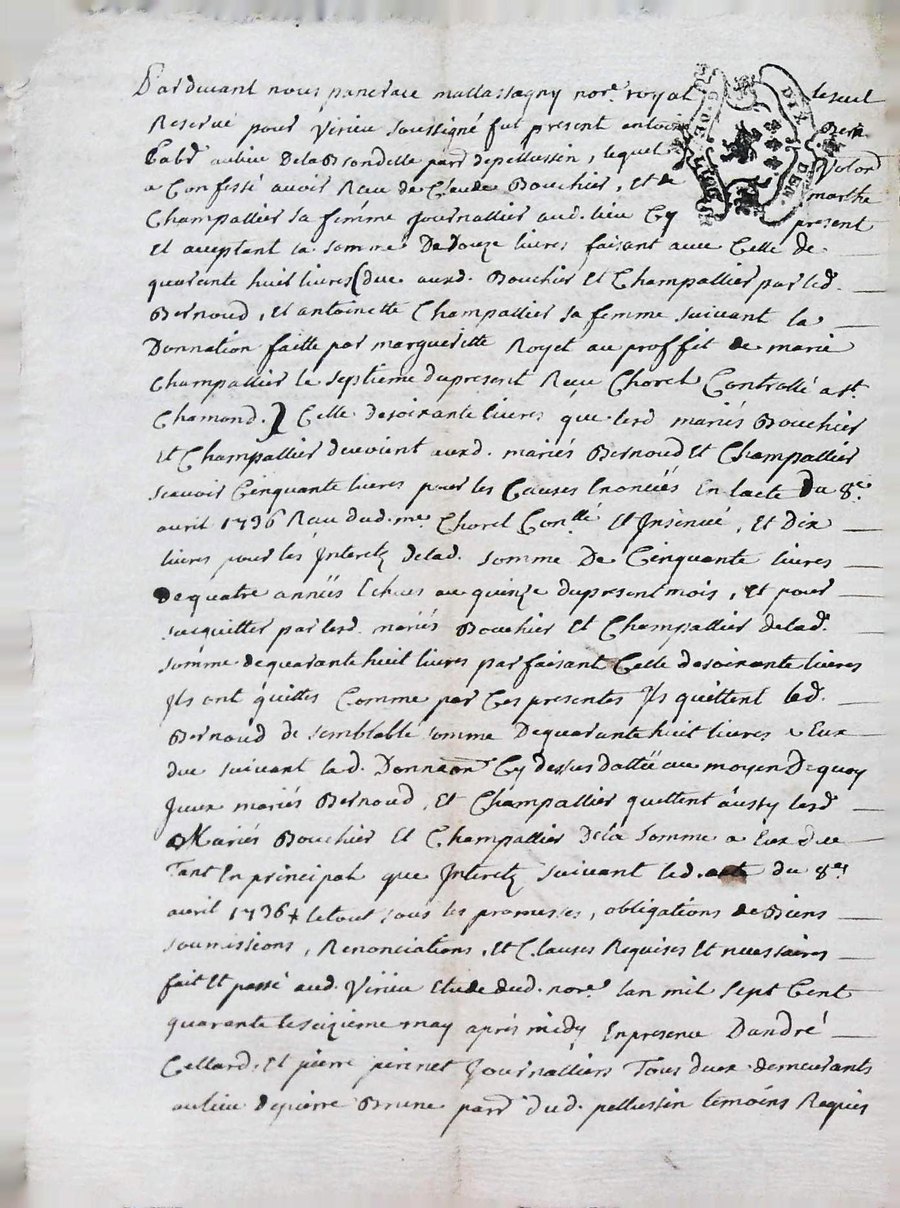 Pardevant nous pancrace mallassagny nore. royal le seul
Reservé pour Virieu soussigné fut present antoine Bern
aulieu DelaBrondelle parr depellussin, lequel Volon
a Confessé avoir Reçu de Claude Bouchier, et de marthe
Champallier sa femme Journallier aud. lieu Cy present
et acceptant la somme DeDouze livres faisant avec Celle de
quarante huit livres (due auxd. Bouchier et Champallier par led.
Bernoud, et antoinette Champallier sa femme suivant la
Donnation faitte par margueritte Royet au proffit de marie
Champallier le septieme dupresent Reçu Chorel Controllé a st.
Chamond.) Celle desoixante livres que lesd mariés Bouchier
et Champallier devoient auxd. mariés Bernoud et Champallier
scavoir Cinquante livres pour les Causes Enoncées En lacte du 8e.
avril 1736 Reçu dud. me. Chorel Conllé et Insinué, et Dix
livres pour les Interetz delad. somme De Cinquante livres
de quatre années Echues au quinze dupresent mois, et pour
sacquitter par lesd. mariés Bouchier et Champallier delad.
somme dequarante huit livres parfaisant Celle desoixante livres
Ils ont quittes Comme par Ces presentes Ils quittent led.
Bernoud de semblable somme Dequarante huit livres a Eux
due suivant lad. Donnaon Cy dessus dattée au moyen Dequoy
Iceux mariés Bernoud, et Champallier quittent aussy lesd
Mariés Bouchier et Champallier De la somme a Eux due
Tant En principal que Interetz suivant led. acte du 8e.
avril 1736 + letout sous les promesses, obligations de Biens
soumissions, Renonciations, et Clauses Requises et necessaires
fait et passé aud. Virieu Etude dud. nore. lan mil sept Cent
quarante le seizieme may après midy En presence Dandré
Cellard, et pierre perinet Journalliers Tous deux demeurants
au lieu depierre Brune parr dud. pellussin temoins Requis
DIX DEN.